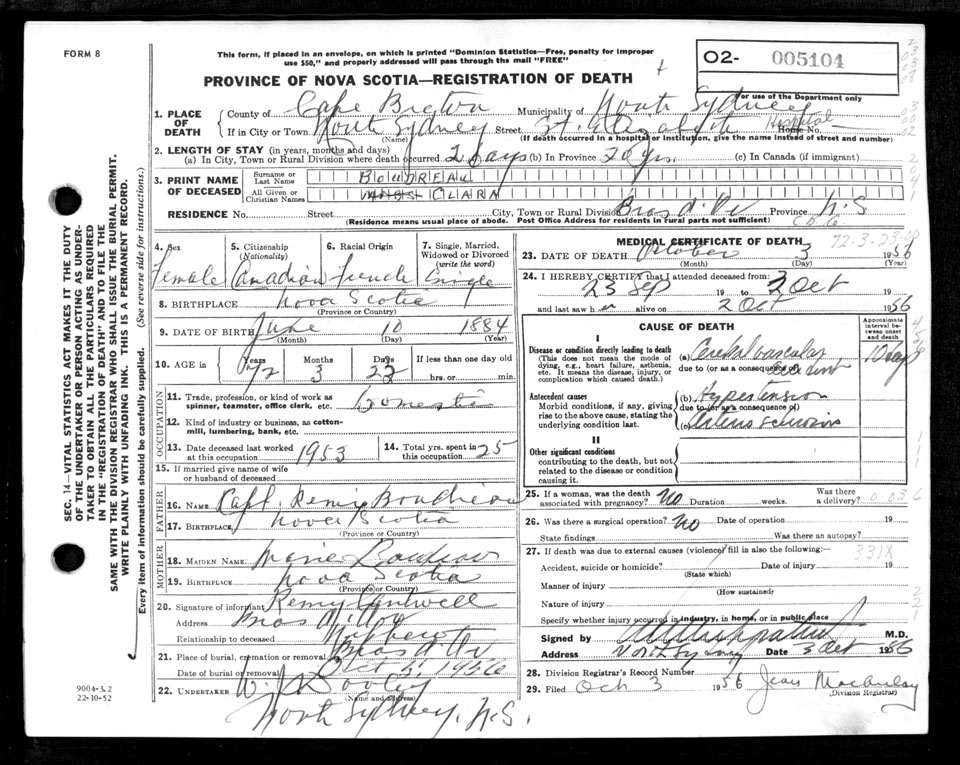 FORM 8
This form, if placed in an envelope, on which is printed "Dominion Statistics—Free, penalty for improper
use $50," and properly addressed will pass through the mail "FREE"
O2- 005104
For use of the Department only
PROVINCE OF NOVA SCOTIA—REGISTRATION OF DEATH
1. PLACE OF DEATH
County of Cape Breton Municipality of North Sydney
If in City or Town North Sydney Street St. Elizabeth Hospital House No.
(Name) (If death occurred in a hospital or institution, give the name instead of street and number)
2. LENGTH OF STAY (in years, months and days)
(a) In City, Town or Rural Division where death occurred 2 days (b) In Province 70 yrs. (c) In Canada (if immigrant)
3. PRINT NAME OF DECEASED
Surname or Last Name BOUDREAU
All Given or Christian Names CLARA
RESIDENCE No. Street City, Town or Rural Division Bras d'Or Province N.S
(Residence means usual place of abode. Post Office Address for residents in rural parts not sufficient) C.B. Co
4. Sex Female
5. Citizenship (Nationality) Canadian
6. Racial Origin French
7. Single, Married, Widowed or Divorced (write the word) Single
8. BIRTHPLACE Nova Scotia
(Province or Country)
9. DATE OF BIRTH June 10 1884
(Month) (Day) (Year)
10. AGE in Years 72 Months 3 Days 23 If less than one day old
hrs. or min.
OCCUPATION
11. Trade, profession, or kind of work as spinner, teamster, office clerk, etc. Domestic
12. Kind of industry or business, as cotton-mill, lumbering, bank, etc.
13. Date deceased last worked at this occupation 1953
14. Total yrs. spent in this occupation 25
15. If married give name of wife or husband of deceased
FATHER
16. NAME Capt. Remi Boudreau
17. BIRTHPLACE Nova Scotia
(Province or Country)
MOTHER
18. MAIDEN NAME Marie Boudreau
19. BIRTHPLACE Nova Scotia
(Province or Country)
20. Signature of informant Remy Cantwell
Address Bras d'Or
Relationship to deceased Nephew
21. Place of burial, cremation or removal Bras d'Or
Date of burial or removal Oct 5, 1956
22. UNDERTAKER W. J. Dooley
(Name and address)
North Sydney, N.S.
MEDICAL CERTIFICATE OF DEATH
72-3-23
23. DATE OF DEATH October 3 1956
(Month) (Day) (Year)
24. I HEREBY CERTIFY that I attended deceased from
23 Sep 19 to 2 Oct 19
and last saw her alive on 2 Oct 1956
CAUSE OF DEATH
Approximate interval between onset and death
I
Disease or condition directly leading to death
(This does not mean the mode of dying, e.g., heart failure, asthenia, etc. It means the disease, injury, or complication which caused death.)
(a) Cerebral vascular accident 10 days
due to (or as a consequence of)
Antecedent causes
Morbid conditions, if any, giving rise to the above cause, stating the underlying condition last.
(b) Hypertension
due to (or as a consequence of)
(c) Arterio sclerosis
II
Other significant conditions
contributing to the death, but not related to the disease or condition causing it.
25. If a woman, was the death associated with pregnancy? No Duration weeks. Was there a delivery?
0036
26. Was there a surgical operation? No Date of operation 19
State findings Was there an autopsy?
27. If death was due to external causes (violence) fill in also the following:—
331X
Accident, suicide or homicide? Date of injury 19
(State which)
Manner of injury
(How sustained)
Nature of injury
Specify whether injury occurred in industry, in home, or in public place
Signed by M.D.
Address North Sydney Date 3 Oct 1956
28. Division Registrar's Record Number
29. Filed Oct 3 1956 Jean MacAulay
(Division Registrar)
SEC. 14—VITAL STATISTICS ACT MAKES IT THE DUTY
OF THE UNDERTAKER OR PERSON ACTING AS UNDERTAKER TO OBTAIN ALL THE PARTICULARS REQUIRED
IN THE "REGISTRATION OF DEATH" AND TO FILE THE
SAME WITH THE DIVISION REGISTRAR WHO SHALL ISSUE THE BURIAL PERMIT.
WRITE PLAINLY WITH UNFADING INK. THIS IS A PERMANENT RECORD.
Every item of information should be carefully supplied. (See reverse side for instructions.)
9004-3.2
22-10-52